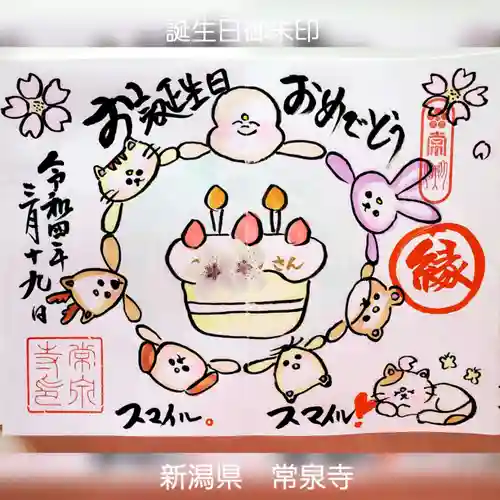 誕生日御朱印
お誕生日
おめでとう
令和四年
三月十九日
さん
縁
常泉
寺邑
スマイル。
スマイル!
新潟県 常泉寺